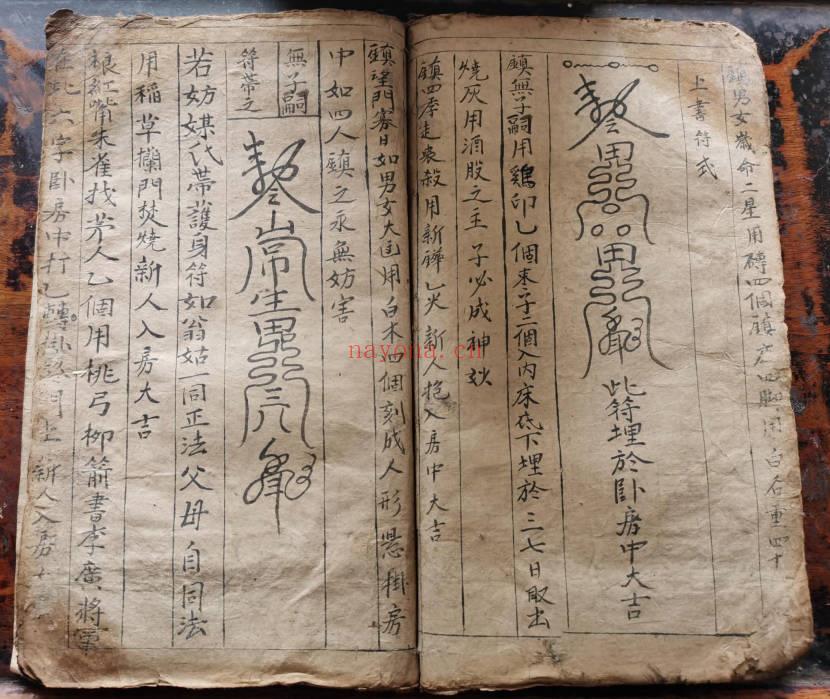 鎮男女歲命二星用磚四個鎮床四脚用白石重四十
上書符式
此符埋於卧房中大吉
鎮無子嗣用鷄卯乙個枣子二個入内床底下埋於三七日取出
燒灰用酒股之主子必成神妙
鎮四季走喪殺用新 乙火新人抱入房中大吉
鎮望門寡日如男女大 用白木四個刻成人形懸掛房
中如四人鎮之永無妨害
無子嗣
符帶之
若妨媒氏帶護身符如翁姑一同正法父毋自同法
用稻草攔門焚燒新人入房大吉
紅嘴朱雀找茅人乙個用桃弓柳箭書李廣將軍
在此六字卧房中打乙轉掛 門上新人入房
nayona.cn